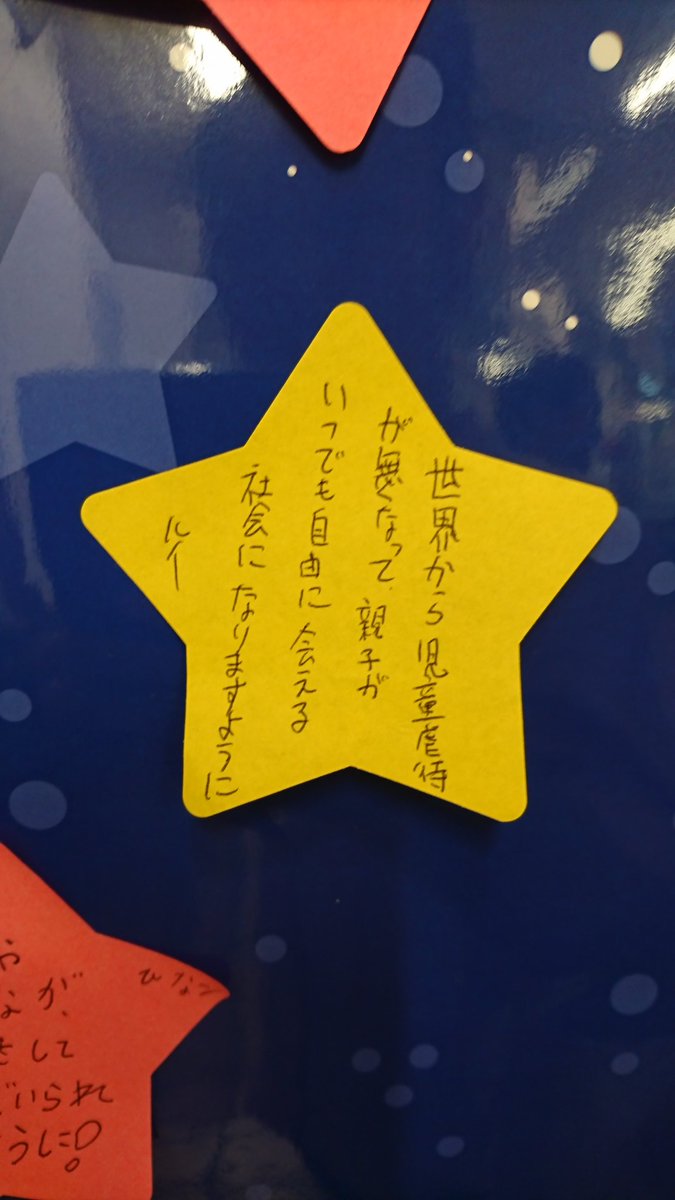 世界から児童虐待
が無くなって、親子が
いつでも自由に会える
社会になりますように
ルイ
ひなつ
なが、
して
いられ
うに!